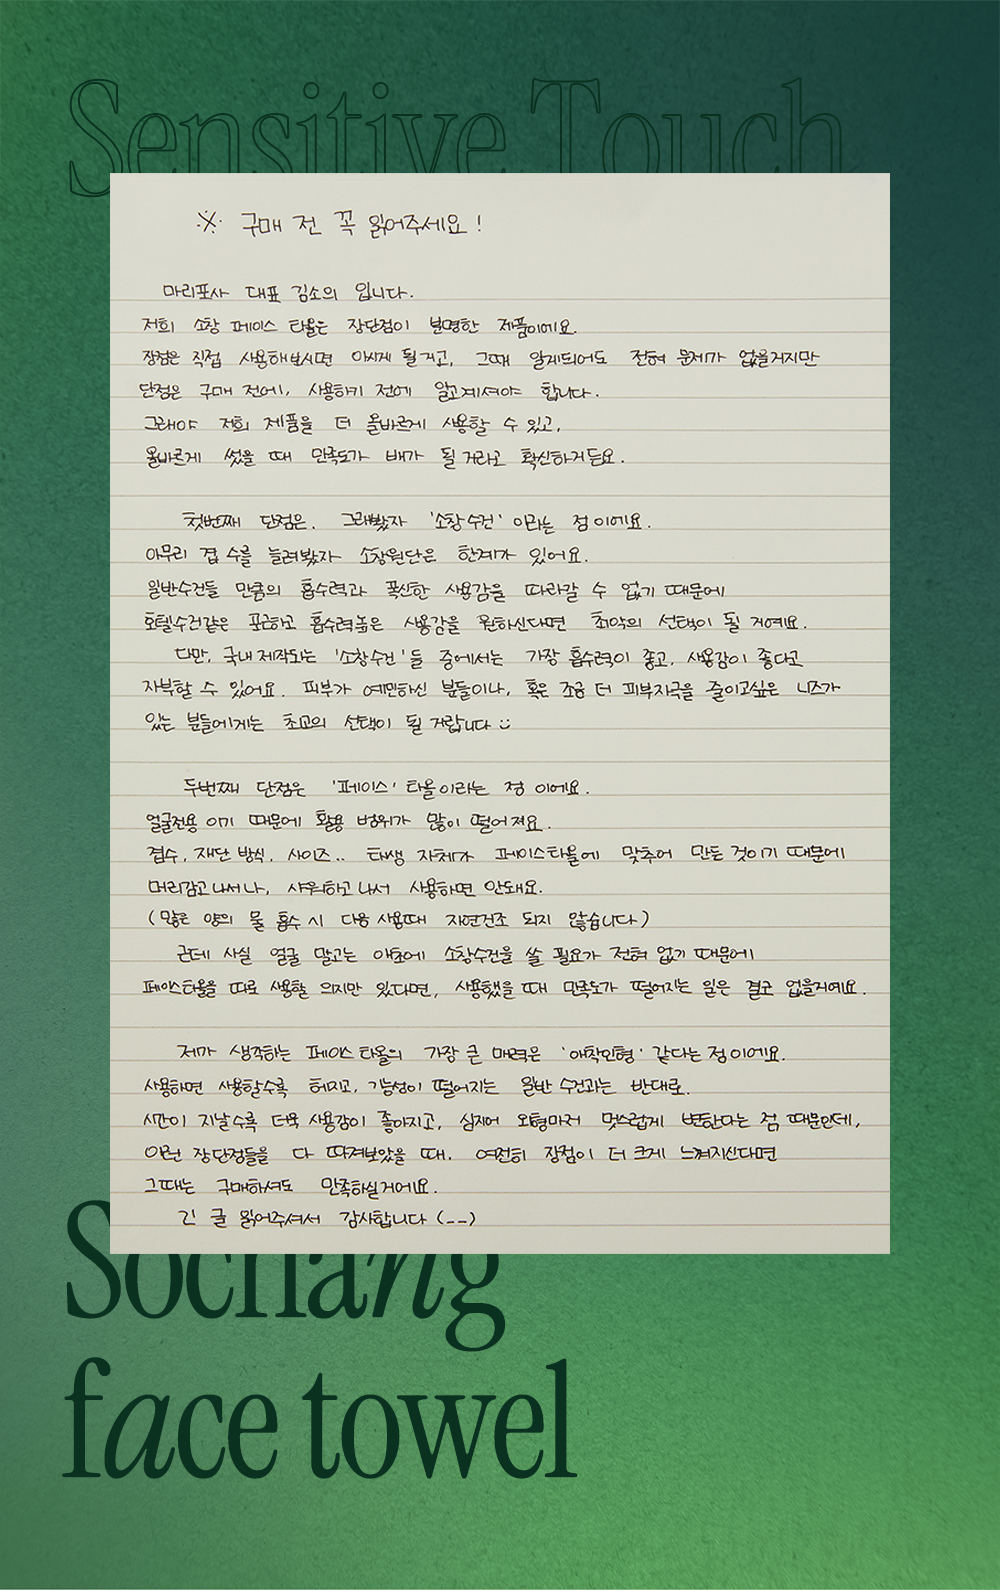 Sensitive Touch
※ 구매 전 꼭 읽어주세요!
마리포사 대표 김소의 입니다.
저희 소창 페이스 타올은 장단점이 분명한 제품이에요.
장점은 직접 사용해보시면 아시게 될거고, 그때 알게되어도 전혀 문제가 없을거지만
단점은 구매 전에, 사용하기 전에 알고계셔야 합니다.
그래야 저희 제품을 더 올바르게 사용할 수 있고,
올바르게 썼을 때 만족도가 배가 될거라고 확신하거든요.
첫번째 단점은, 그래봤자 '소창수건' 이라는 점이에요.
아무리 겹 수를 늘려봤자 소창원단은 한계가 있어요.
일반수건들 만큼의 흡수력과 폭신한 사용감을 따라갈 수 없기 때문에
호텔수건같은 포근하고 흡수력높은 사용감을 원하신다면 최악의 선택이 될 거예요.
다만, 국내제작되는 '소창수건'들 중에서는 가장 흡수력이 좋고, 사용감이 좋다고
자부할 수 있어요. 피부가 예민하신 분들이나, 혹은 조금 더 피부자극을 줄이고싶은 니즈가
있는 분들에게는 최고의 선택이 될 거랍니다
두번째 단점은 '페이스' 타올이라는 점 이에요.
얼굴전용 이기 때문에 활용 범위가 많이 떨어져요.
겹수, 재단 방식, 사이즈.. 태생 자체가 페이스타올에 맞추어 만든 것이기 때문에
머리감고나서나, 샤워하고나서 사용하면 안돼요.
(많은 양의 물 흡수 시 다음 사용때 자연건조 되지 않습니다)
근데 사실 얼굴 말고는 애초에 소창수건을 쓸 필요가 전혀 없기 때문에
페이스타올을 따로 사용할 의지만 있다면, 사용했을 때 만족도가 떨어지는 일은 결코 없을거예요.
제가 생각하는 페이스타올의 가장 큰 매력은 '애착인형' 같다는점이에요.
사용하면 사용할수록 헤지고, 기능성이 떨어지는 일반 수건과는 반대로.
시간이 지날수록 더욱 사용감이 좋아지고, 심지어 외형마저 멋스럽게 변한다는 점 때문인데,
이런 장단점들을 다 따져보았을 때, 여전히 장점이 더 크게 느껴지신다면
그때는 구매하셔도 만족하실거에요.
긴 글 읽어주셔서 감사합니다 (_ _)
Sochang
face towel